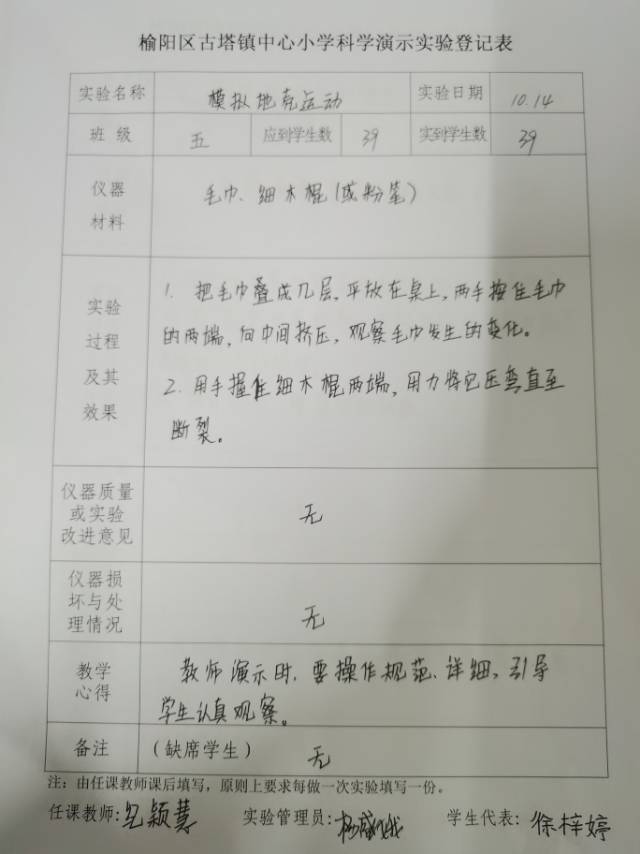 榆阳区古塔镇中心小学科学演示实验登记表
实验名称 模拟地壳运动 实验日期 10.14
班 级 五 应到学生数 39 实到学生数 39
仪器
材料
毛巾、细木棍(或粉笔)
实验
过程
及其
效果
1. 把毛巾叠成几层,平放在桌上,两手按住毛巾
的两端,向中间挤压,观察毛巾发生的变化。
2. 用手握住细木棍两端,用力将它压弯直至
断裂。
仪器质量
或实验
改进意见
无
仪器损
坏与处
理情况
无
教学
心得
教师演示时,要操作规范、详细,引导
学生认真观察。
备注 (缺席学生) 无
注:由任课教师课后填写,原则上要求每做一次实验填写一份。
任课教师: 颖慧 实验管理员: 学生代表: 徐梓婷